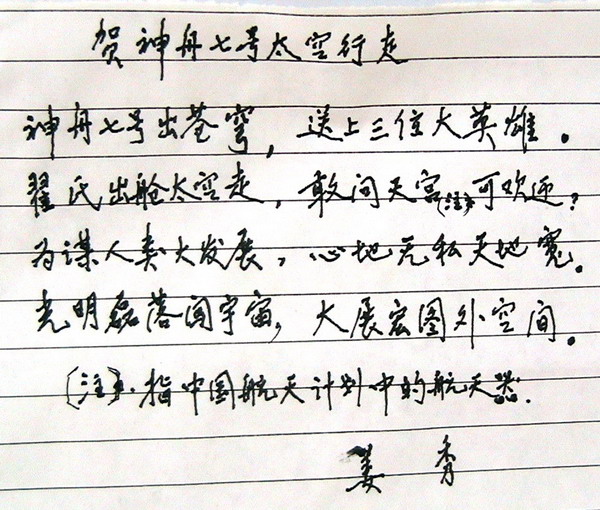 贺神舟七号太空行走
神舟七号出苍穹，送上三位大英雄。
翟氏出舱太空走，敢问天宫(注)可欢迎？
为谋人类大发展，心地无私天地宽。
光明磊落闯宇宙，大展宏图外空间。
(注)：指中国航天计划中的航天器.
姜秀